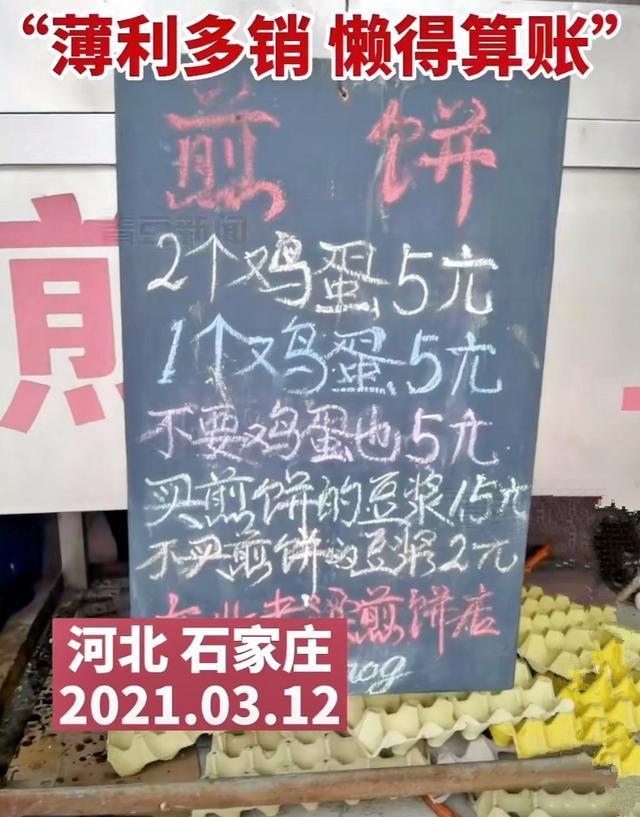 “薄利多销 懒得算账”
煎饼
青豆新闻
2个鸡蛋5元
1个鸡蛋5元
不要鸡蛋也5元
买煎饼的豆浆1.5元
不买煎饼的豆浆2元
煎饼店
煎
河北 石家庄
2021.03.12